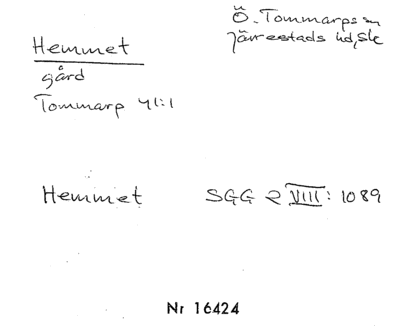 Hemmet
gård
Tommarp 41:1
Ö. Tommarps sn
Järrestads hd, Sk
Hemmet SGG 2 VIII: 1089
Nr 16424